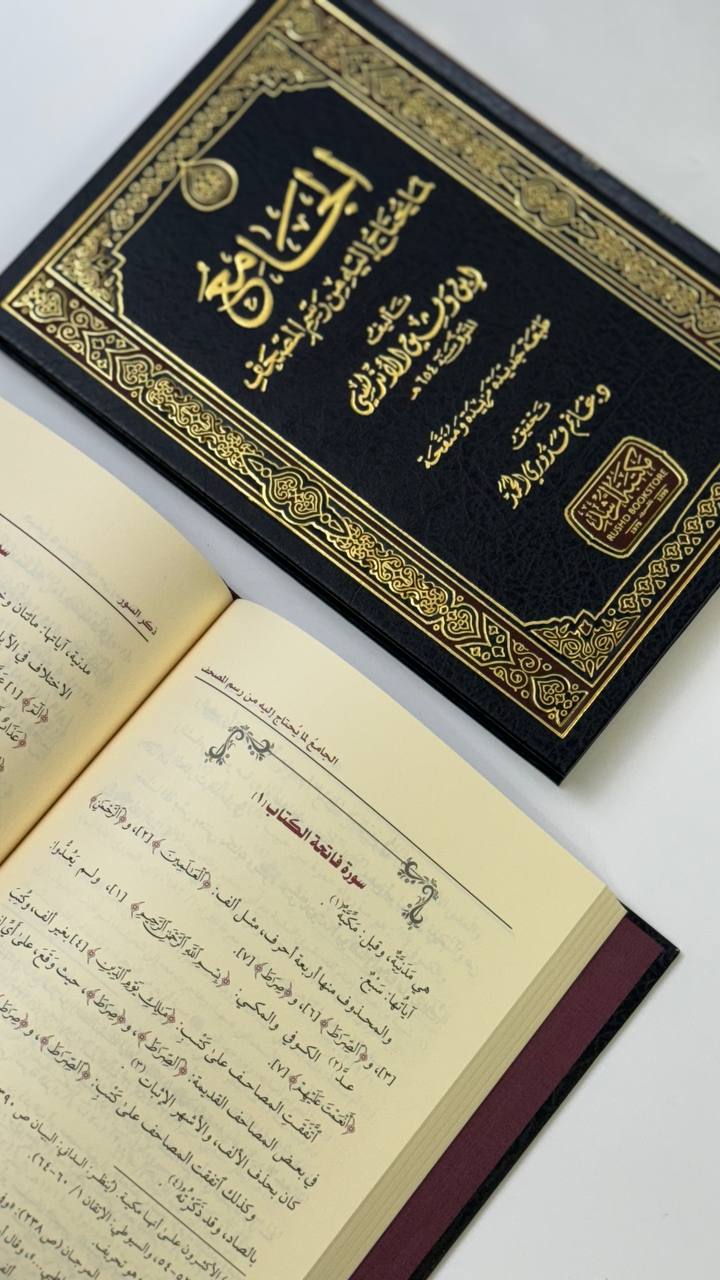 الجَامِعُ
لما يُحْتَاجُ إليه من رَسْمِ المُصْحَفِ
تأليف
ابن وثيق الأندلسي
المتوفى سنة ٦٥٤ هـ
طبعة جديدة مزيدة ومنقحة
تحقيق
د. غانم قدوري الحمد
RUSHD BOOKSTORE
1979 1399
ذكر السور
مدنية، آياتها: مائتان و
الاختلاف في الآ
الجامعُ لما يُحتاج إليه من رسم المصحف
سورة فاتحة الكتاب (١)
هي مَدَنِيَّة، وقيل: مَكِّيَّة(١).
آياتُها: سَبْعٌ.
والمحذوف منها أربعة أحرف، مثل ألف: ﴿الْعَالَمِينَ﴾ [٢]، و﴿الرَّحْمَنِ﴾
[٣]، و﴿الصِّرَطَ﴾ [٦]، و﴿صِرَطَ﴾ [٧].
عدَّ(٢) الكوفي والمكي: ﴿بِسْمِ اللَّهِ الرَّحْمَنِ الرَّحِيمِ﴾ [١]، ولم يَعُدُّوا:
﴿أَنْعَمْتَ عَلَيْهِمْ﴾ [٧].
اتَّفَقَتِ المصاحف على كَتْبِ: ﴿مَلِكِ يَوْمِ الدِّينِ﴾ [٤] بغير ألف، وكُتِبَ
في بعض المصاحف القديمة: ﴿الصِّرَطَ﴾، و﴿صِرَطَ﴾، حيث وَقَعَ، على أَيِّ
كان بحذف الألف، والأشهر الإثبات(٣).
وكذلك اتفقت المصاحف على كَتْبِ: ﴿الصِّرَطَ﴾، و﴿صِرَطَ
بالصاد، وقد ذَكَرْتُهُ(٤).
الأكثرون على أنها مكية. (ينظر: الداني: البيان ص
٥٤، والسيوطي: الإتقان ١/ ٦٠-٦٤).
هو تحريف.